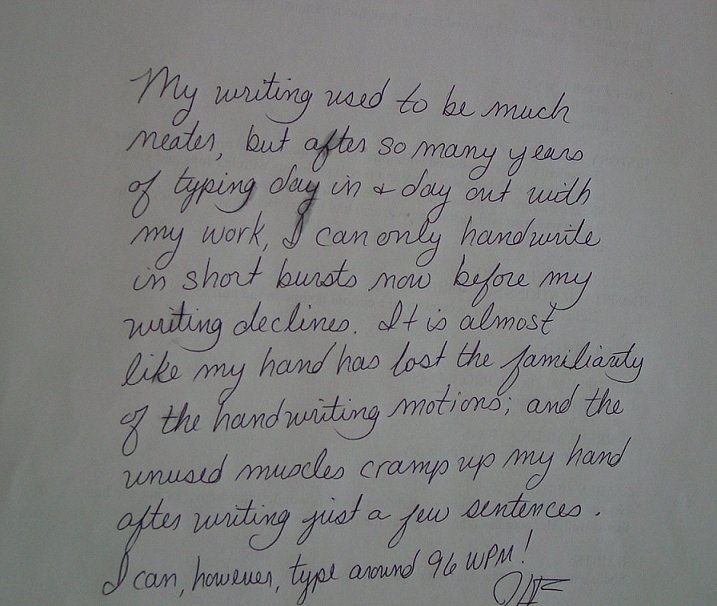 My writing used to be much
neater, but after so many years
of typing day in & day out with
my work, I can only handwrite
in short bursts now before my
writing declines. It is almost
like my hand has lost the familiarity
of the handwriting motions; and the
unused muscles cramp up my hand
after writing just a few sentences.
I can, however, type around 96 WPM!